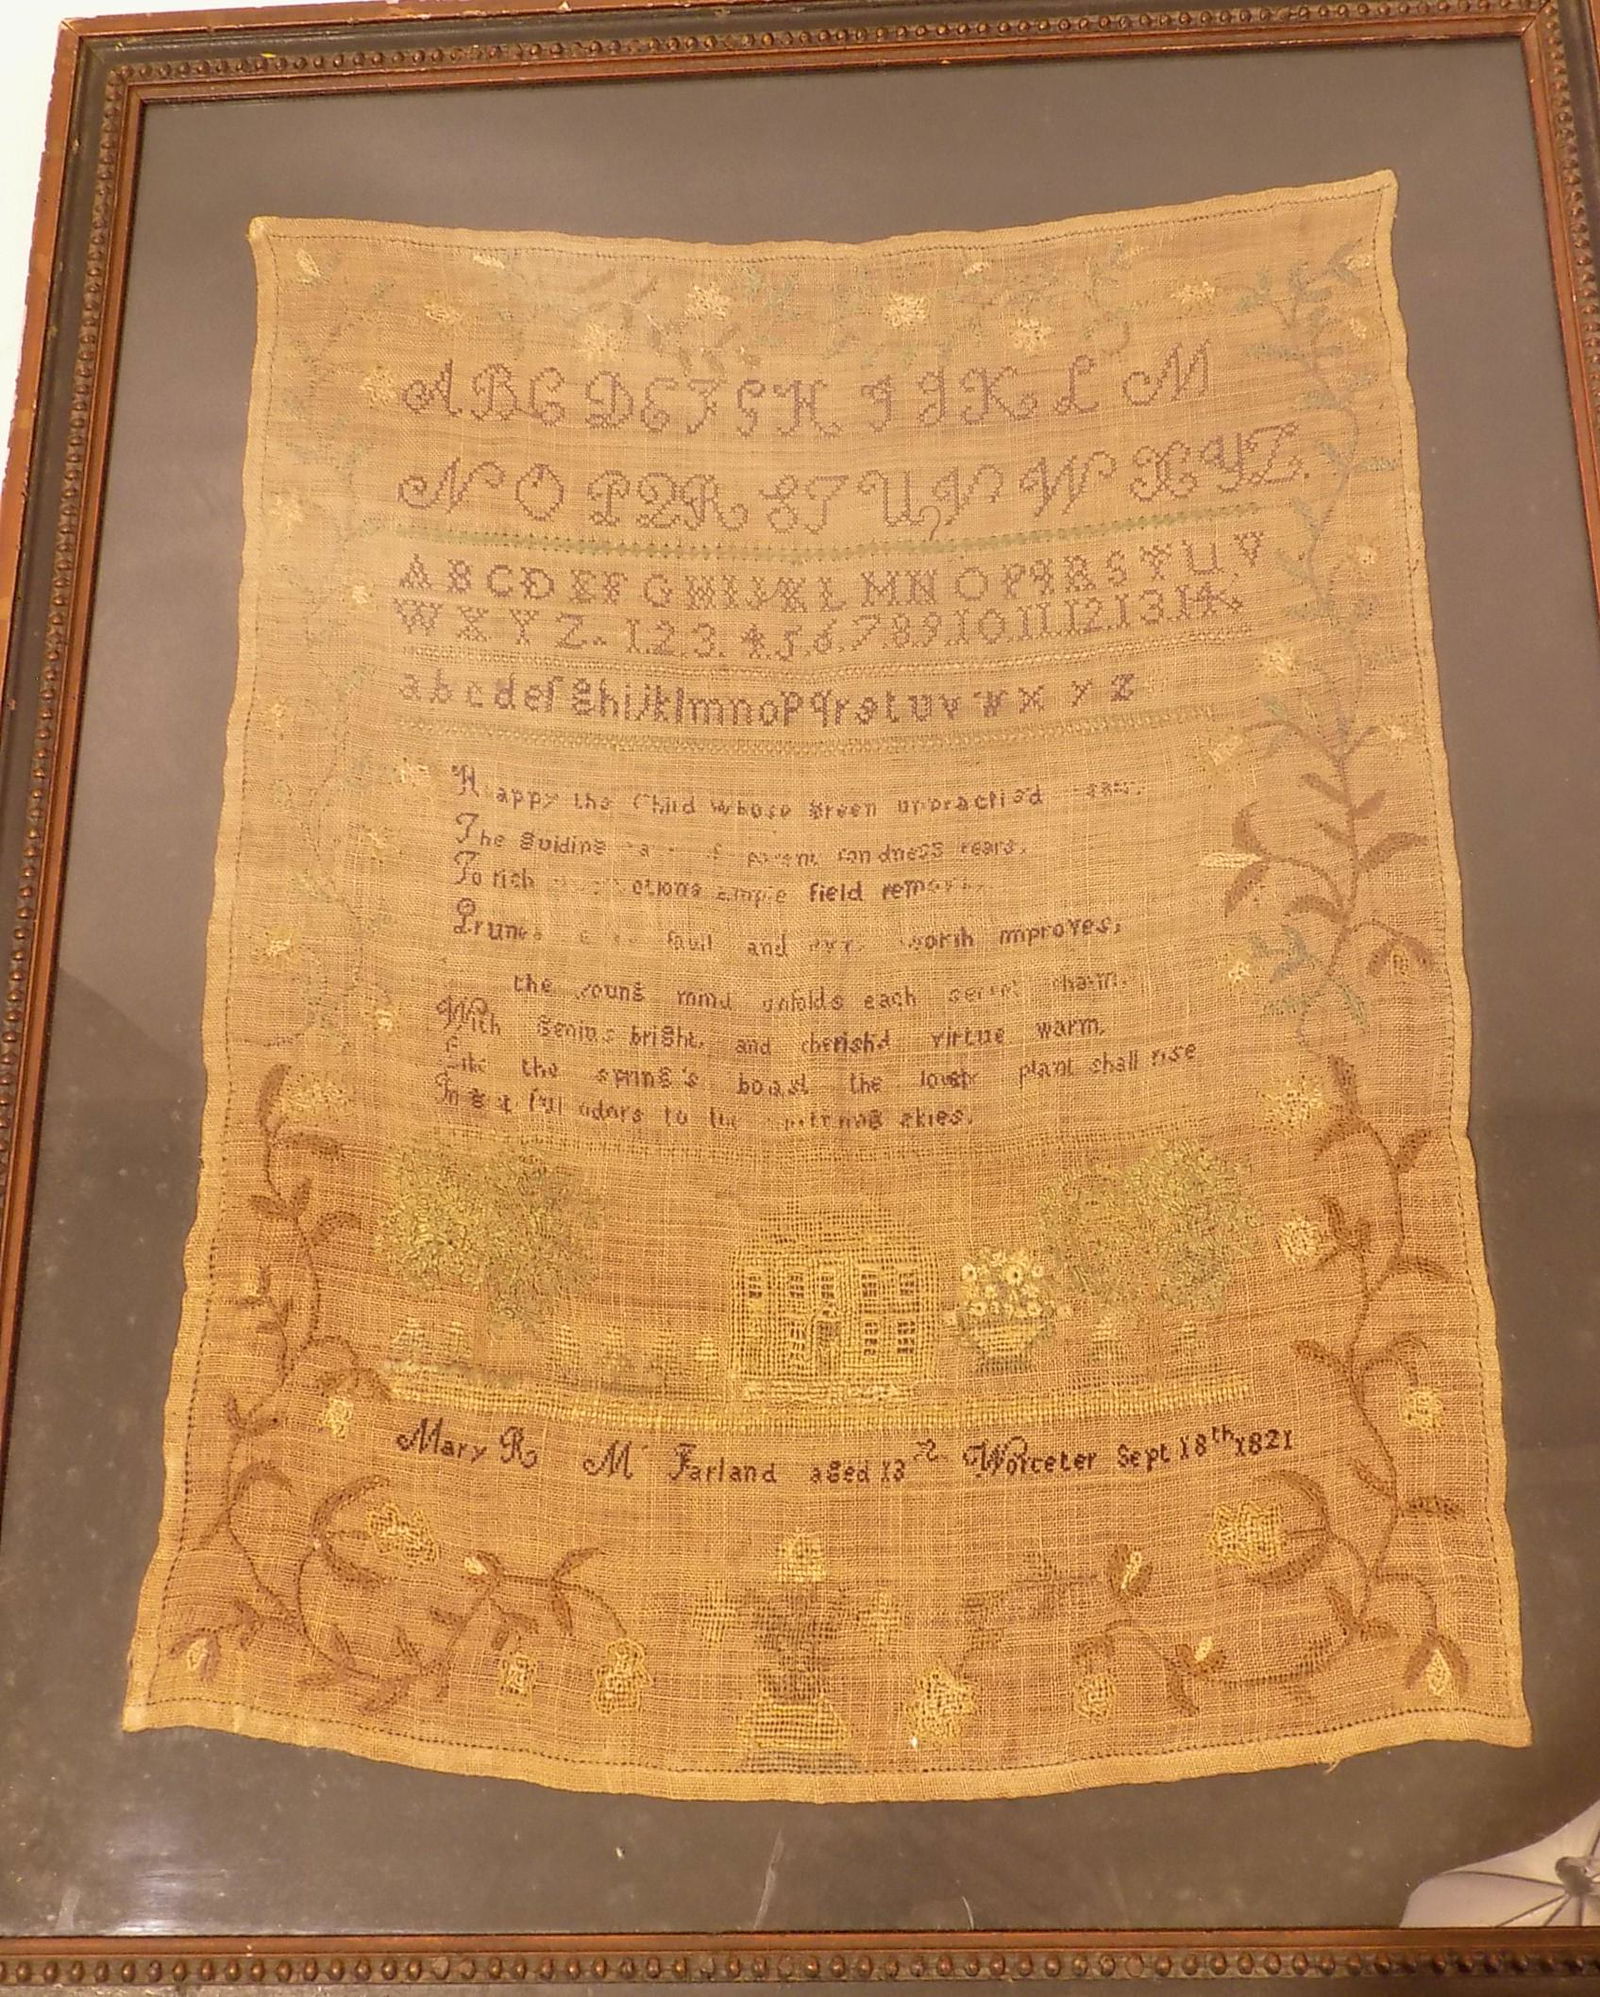 A B C D E F G H I J K L M
N O P Q R S T U V W X Y Z.
A B C D E F G H I J K L M N O P q R S T U V
W X Y Z. 1.2.3.4.5.6.7.8.9.10.11.12.13.14.
a b c d e f g h i j k l m n o p q r s t u v w x y z
Happy the Child whose green unpractis'd
The guiding parent fondness rears,
To rich field
and worth improves,
the young mind unfolds each secret charm,
With genius bright, and cherish'd virtue warm,
Like the spring's boast the lovely plant shall rise
odors to the skies.
Mary R Mc Farland aged 13 Worceter Sept 18th 1821